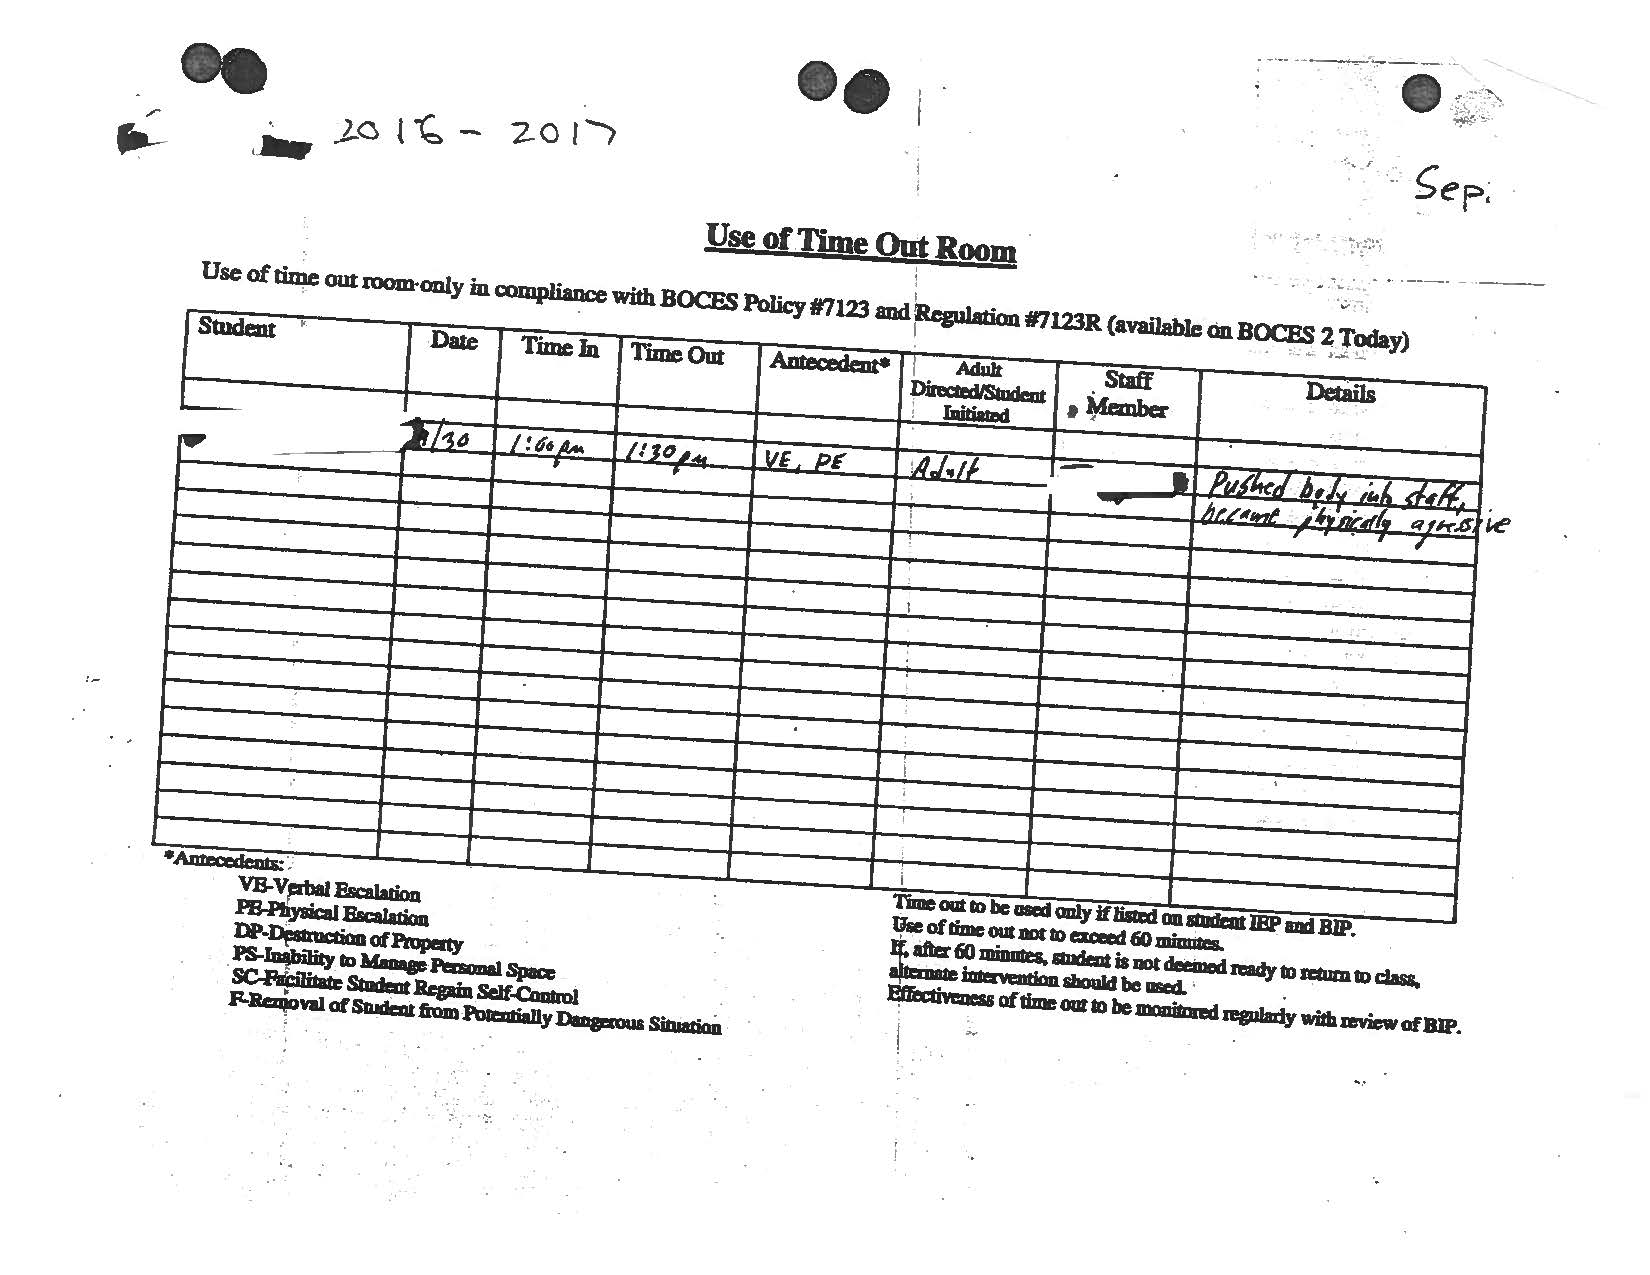 2016 - 2017
Sep.
Use of Time Out Room
Use of time out room only in compliance with BOCES Policy #7123 and Regulation #7123R (available on BOCES 2 Today)
Student Date Time In Time Out Antecedent* Adult Directed/Student Initiated Staff Member Details
/30 1:00pm 1:30pm VE, PE Adult Pushed body into staff,
became physically agressive
*Antecedents:
VE-Verbal Escalation
PE-Physical Escalation
DP-Destruction of Property
PS-Inability to Manage Personal Space
SC-Facilitate Student Regain Self-Control
F-Removal of Student from Potentially Dangerous Situation
Time out to be used only if listed on student IEP and BIP.
Use of time out not to exceed 60 minutes.
If, after 60 minutes, student is not deemed ready to return to class,
alternate intervention should be used.
Effectiveness of time out to be monitored regularly with review of BIP.